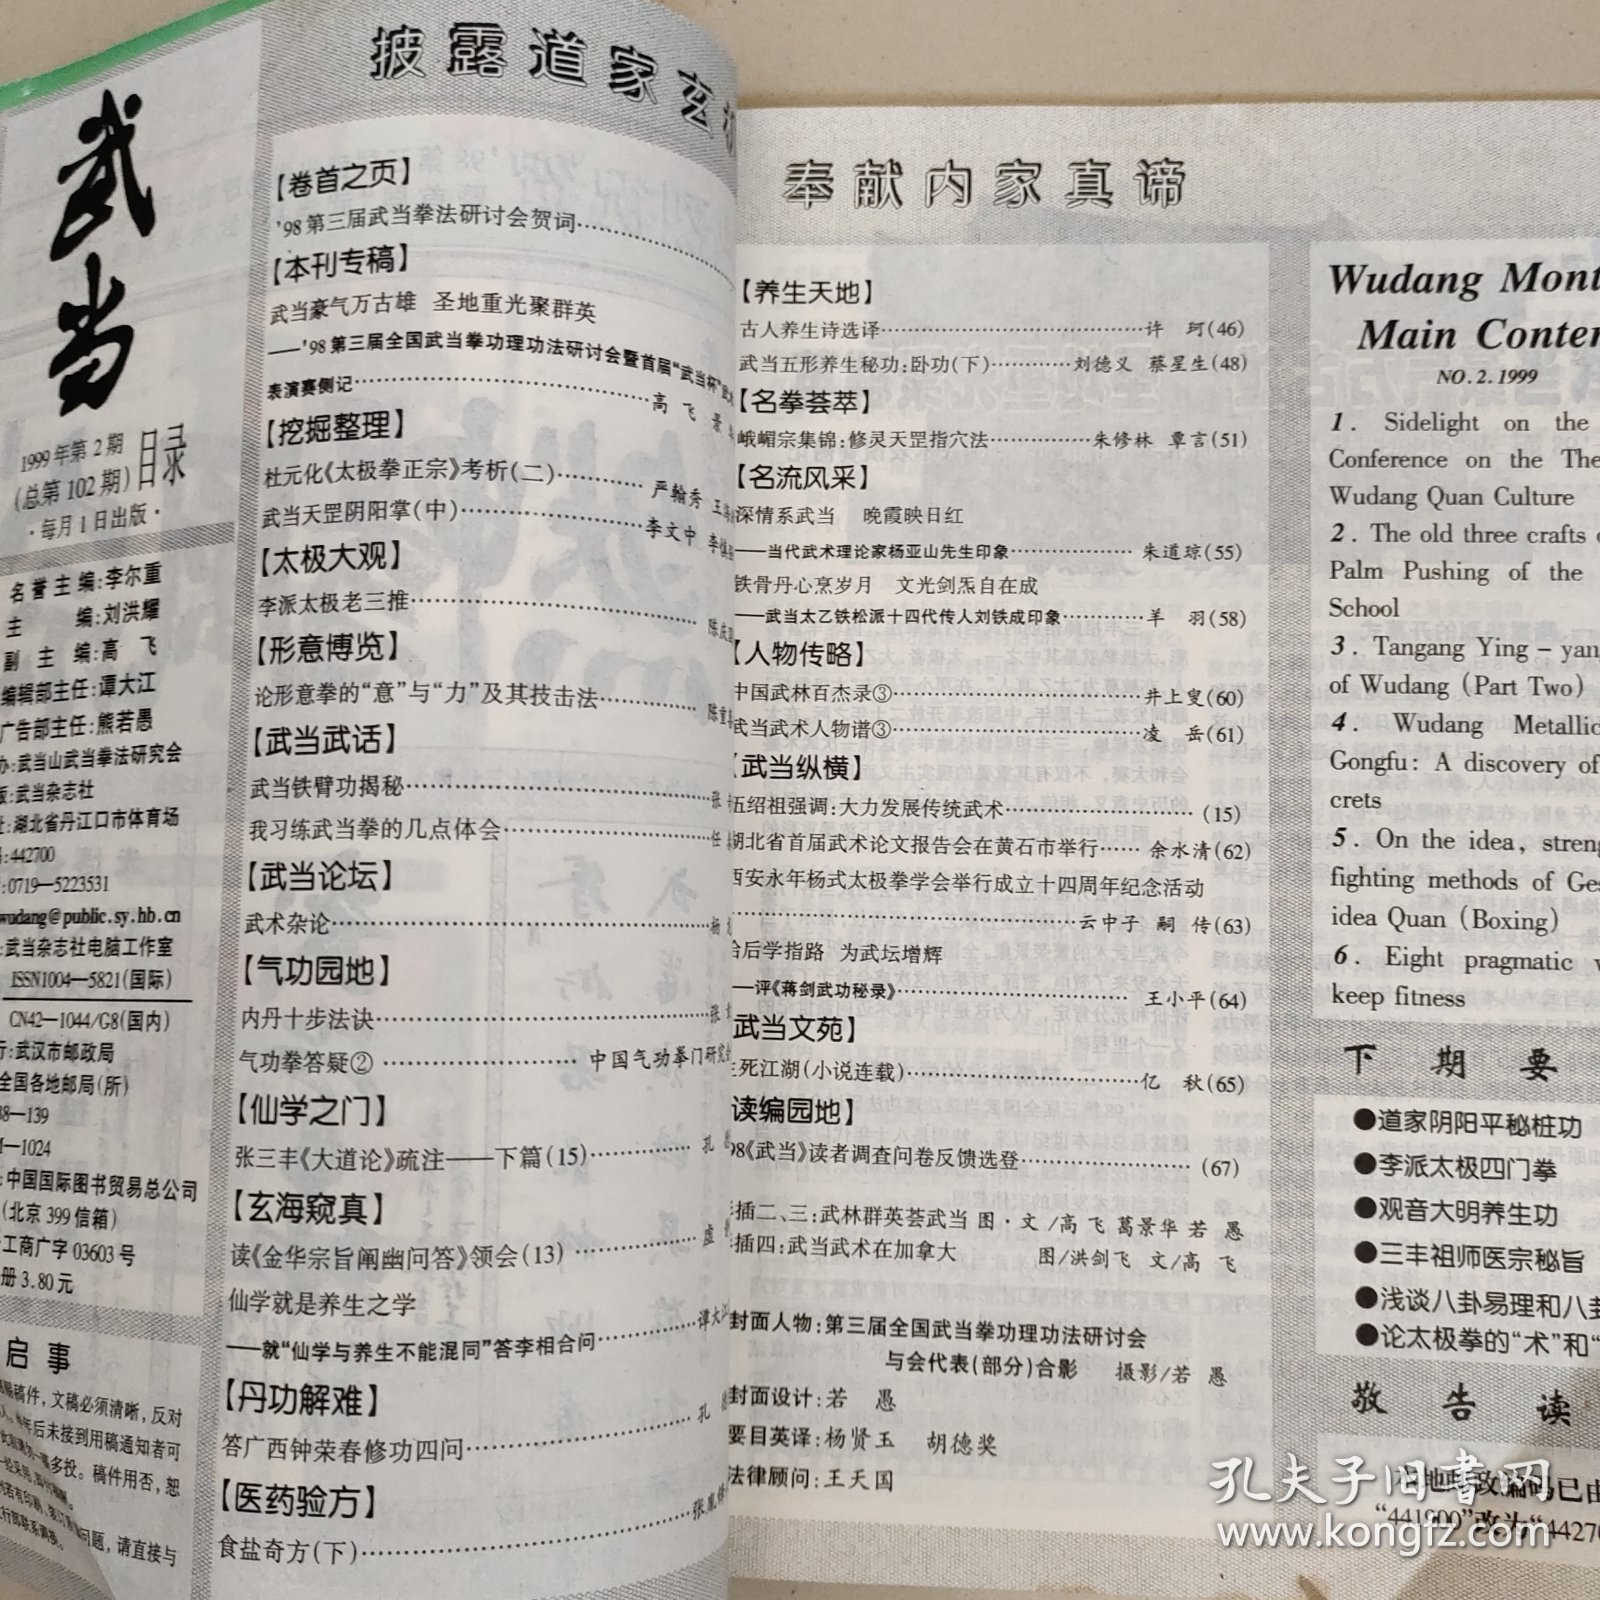 披露道家玄
武当
1999年第2期
(总第102期)
目录
·每月1日出版·
名誉主编:李尔重
主编:刘洪耀
副主编:高飞
编辑部主任:谭大江
广告部主任:熊若愚
办:武当山武当拳法研究会
版:武当杂志社
址:湖北省丹江口市体育场
:442700
:0719—5223531
wudang@public.sy.hb.cn
:武当杂志社电脑工作室
ISSN1004—5821(国际)
CN42—1044/G8(国内)
行:武汉市邮政局
全国各地邮局(所)
38—139
M—1024
:中国国际图书贸易总公司
(北京399信箱)
工商广字03603号
册3.80元
启事
赐稿件,文稿必须清晰,反对
年后未接到用稿通知者可
多投。稿件用否,恕
问题,请直接与
【卷首之页】
'98第三届武当拳法研讨会贺词
【本刊专稿】
武当豪气万古雄 圣地重光聚群英
——'98第三届全国武当拳功理功法研讨会暨首届“武当杯”武术
表演赛侧记 高飞 景
【挖掘整理】
杜元化《太极拳正宗》考析(二) 严翰秀 王
武当天罡阴阳掌(中) 李文中 李慎
【太极大观】
李派太极老三推 陈庆
【形意博览】
论形意拳的“意”与“力”及其技击法 陈重
【武当武话】
武当铁臂功揭秘 张
我习练武当拳的几点体会 任
【武当论坛】
武术杂论 杨
【气功园地】
内丹十步法诀 张
气功拳答疑② 中国气功拳门研究
【仙学之门】
张三丰《大道论》疏注——下篇(15) 孔
【玄海窥真】
读《金华宗旨阐幽问答》领会(13) 虚
仙学就是养生之学
——就“仙学与养生不能混同”答李相合问 谭大
【丹功解难】
答广西钟荣春修功四问 孔
【医药验方】
食盐奇方(下) 张胤
奉献内家真谛
【养生天地】
古人养生诗选译 许珂(46)
武当五形养生秘功:卧功(下) 刘德义 蔡星生(48)
【名拳荟萃】
峨嵋宗集锦:修灵天罡指穴法 朱修林 覃言(51)
【名流风采】
深情系武当 晚霞映日红
——当代武术理论家杨亚山先生印象 朱道琼(55)
铁骨丹心烹岁月 文光剑炁自在成
——武当太乙铁松派十四代传人刘铁成印象 羊羽(58)
【人物传略】
中国武林百杰录③ 井上叟(60)
武当武术人物谱③ 凌岳(61)
【武当纵横】
伍绍祖强调:大力发展传统武术 (15)
湖北省首届武术论文报告会在黄石市举行 余水清(62)
西安永年杨式太极拳学会举行成立十四周年纪念活动
云中子 嗣传(63)
给后学指路 为武坛增辉
——评《蒋剑武功秘录》 王小平(64)
武当文苑】
生死江湖(小说连载) 亿秋(65)
读编园地】
98《武当》读者调查问卷反馈选登 (67)
插二、三:武林群英荟武当 图·文/高飞 葛景华 若愚
插四:武当武术在加拿大 图/洪剑飞 文/高飞
封面人物:第三届全国武当拳功理功法研讨会
与会代表(部分)合影 摄影/若愚
封面设计:若愚
要目英译:杨贤玉 胡德奖
法律顾问:王天国
Wudang Mont
Main Conten
NO.2.1999
1. Sidelight on the
Conference on the The
Wudang Quan Culture
2. The old three crafts
Palm Pushing of the
School
3. Tangang Ying-yan
of Wudang (Part Two)
4. Wudang Metallic
Gongfu: A discovery of
crets
5. On the idea, streng
fighting methods of Ges
idea Quan (Boxing)
6. Eight pragmatic
keep fitness
下期要
●道家阴阳平秘桩功
●李派太极四门拳
●观音大明养生功
●三丰祖师医宗秘旨
●浅谈八卦易理和八卦
●论太极拳的“术”和“
敬告读
本地邮政编码已由
“441900”改为“44270
孔夫子旧书网
www.kongfz.com